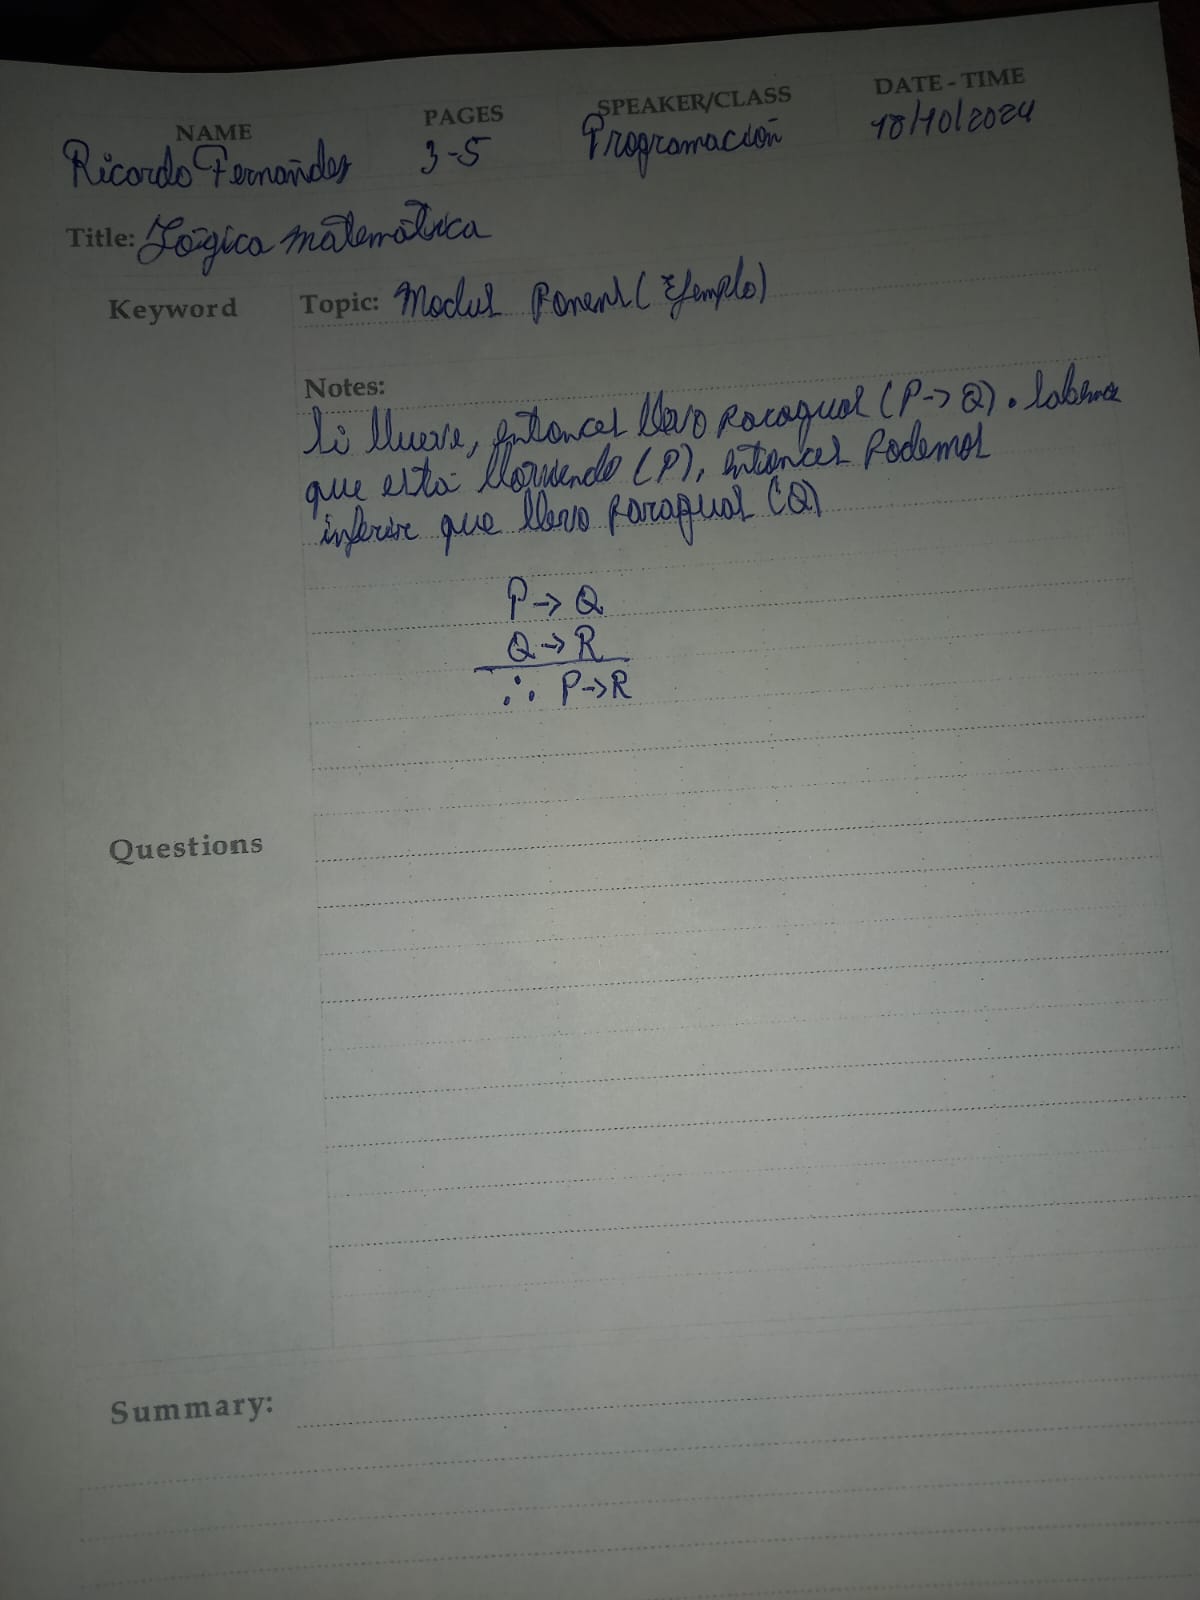 NAME PAGES SPEAKER/CLASS DATE - TIME
Ricardo Fernández 3-5 Programación 18/10/2024
Title: Lógica matemática
Keyword Topic: Modus Ponens (Ejemplo)
Notes:
Si llueve, entonces llevo paraguas (P→Q). Sabemos
que está lloviendo (P), entonces Podemos
inferir que llevo paraguas (Q)
P→Q
Q→R
∴ P→R
Questions
Summary: